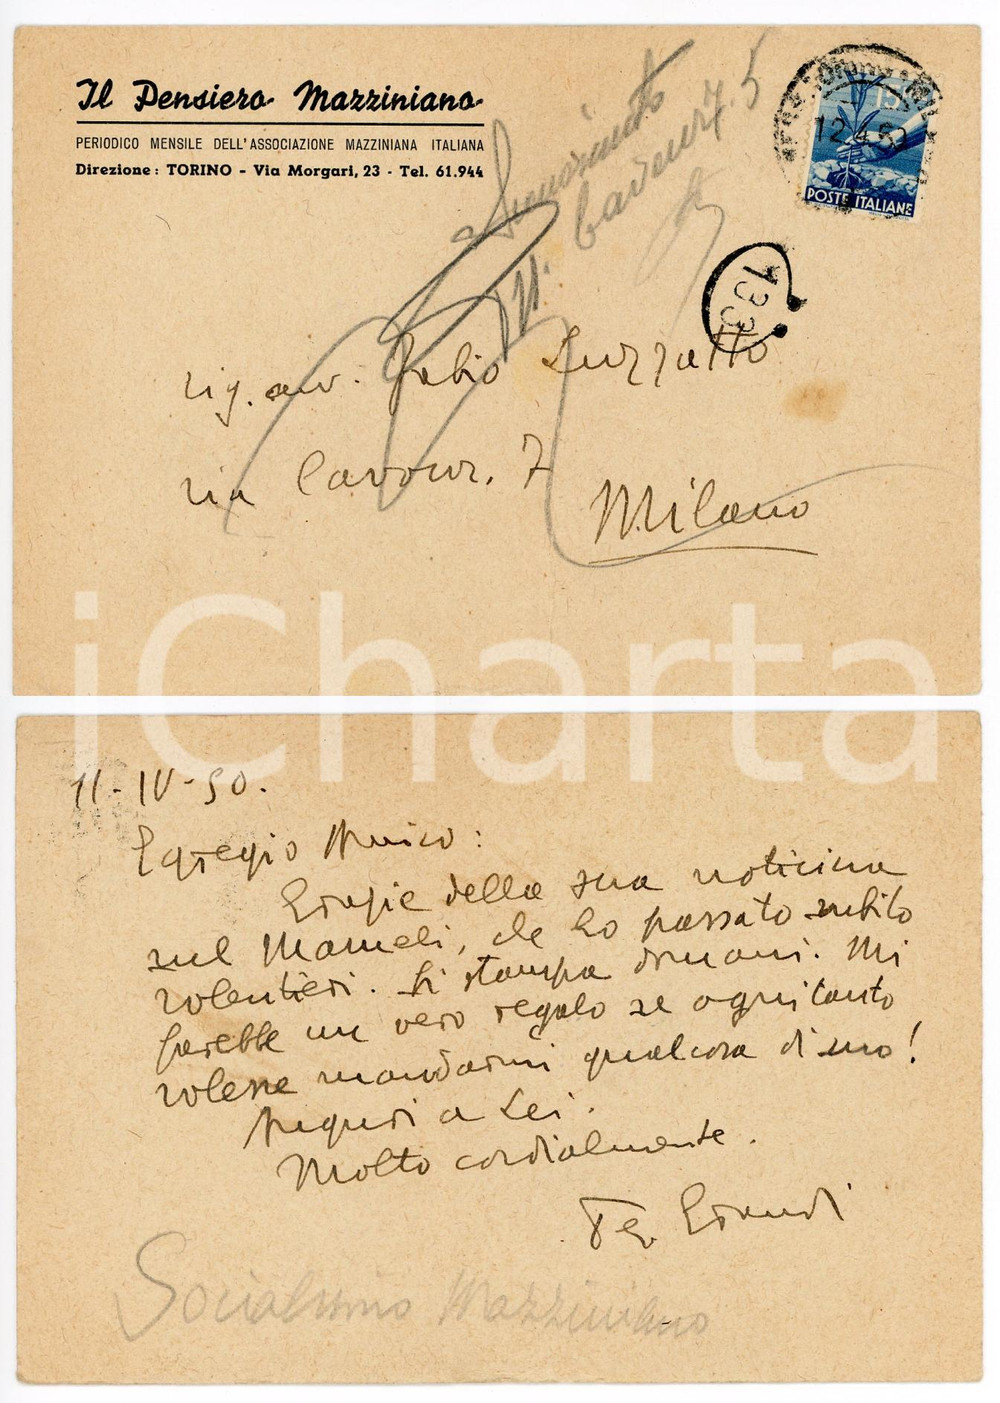 Il Pensiero Mazziniano
PERIODICO MENSILE DELL'ASSOCIAZIONE MAZZINIANA ITALIANA
Direzione: TORINO - Via Morgari, 23 - Tel. 61.944
Sconosciuto
N. Cavour 7. 5
12.4.50
15
POSTE ITALIANE
133
sig. avv. Fabio Luzzatto
via Cavour. 7
Milano
iCharta
11-IV-50.
Egregio Amico:
Grazie della sua noticina
sul Mameli, che ho passato subito
volentieri. Si stampa domani. Mi
farebbe un vero regalo se ogni tanto
volesse mandarmi qualcosa di suo!
Auguri a Lei.
Molto cordialmente.
Ter. Grandi
Socialismo Mazziniano